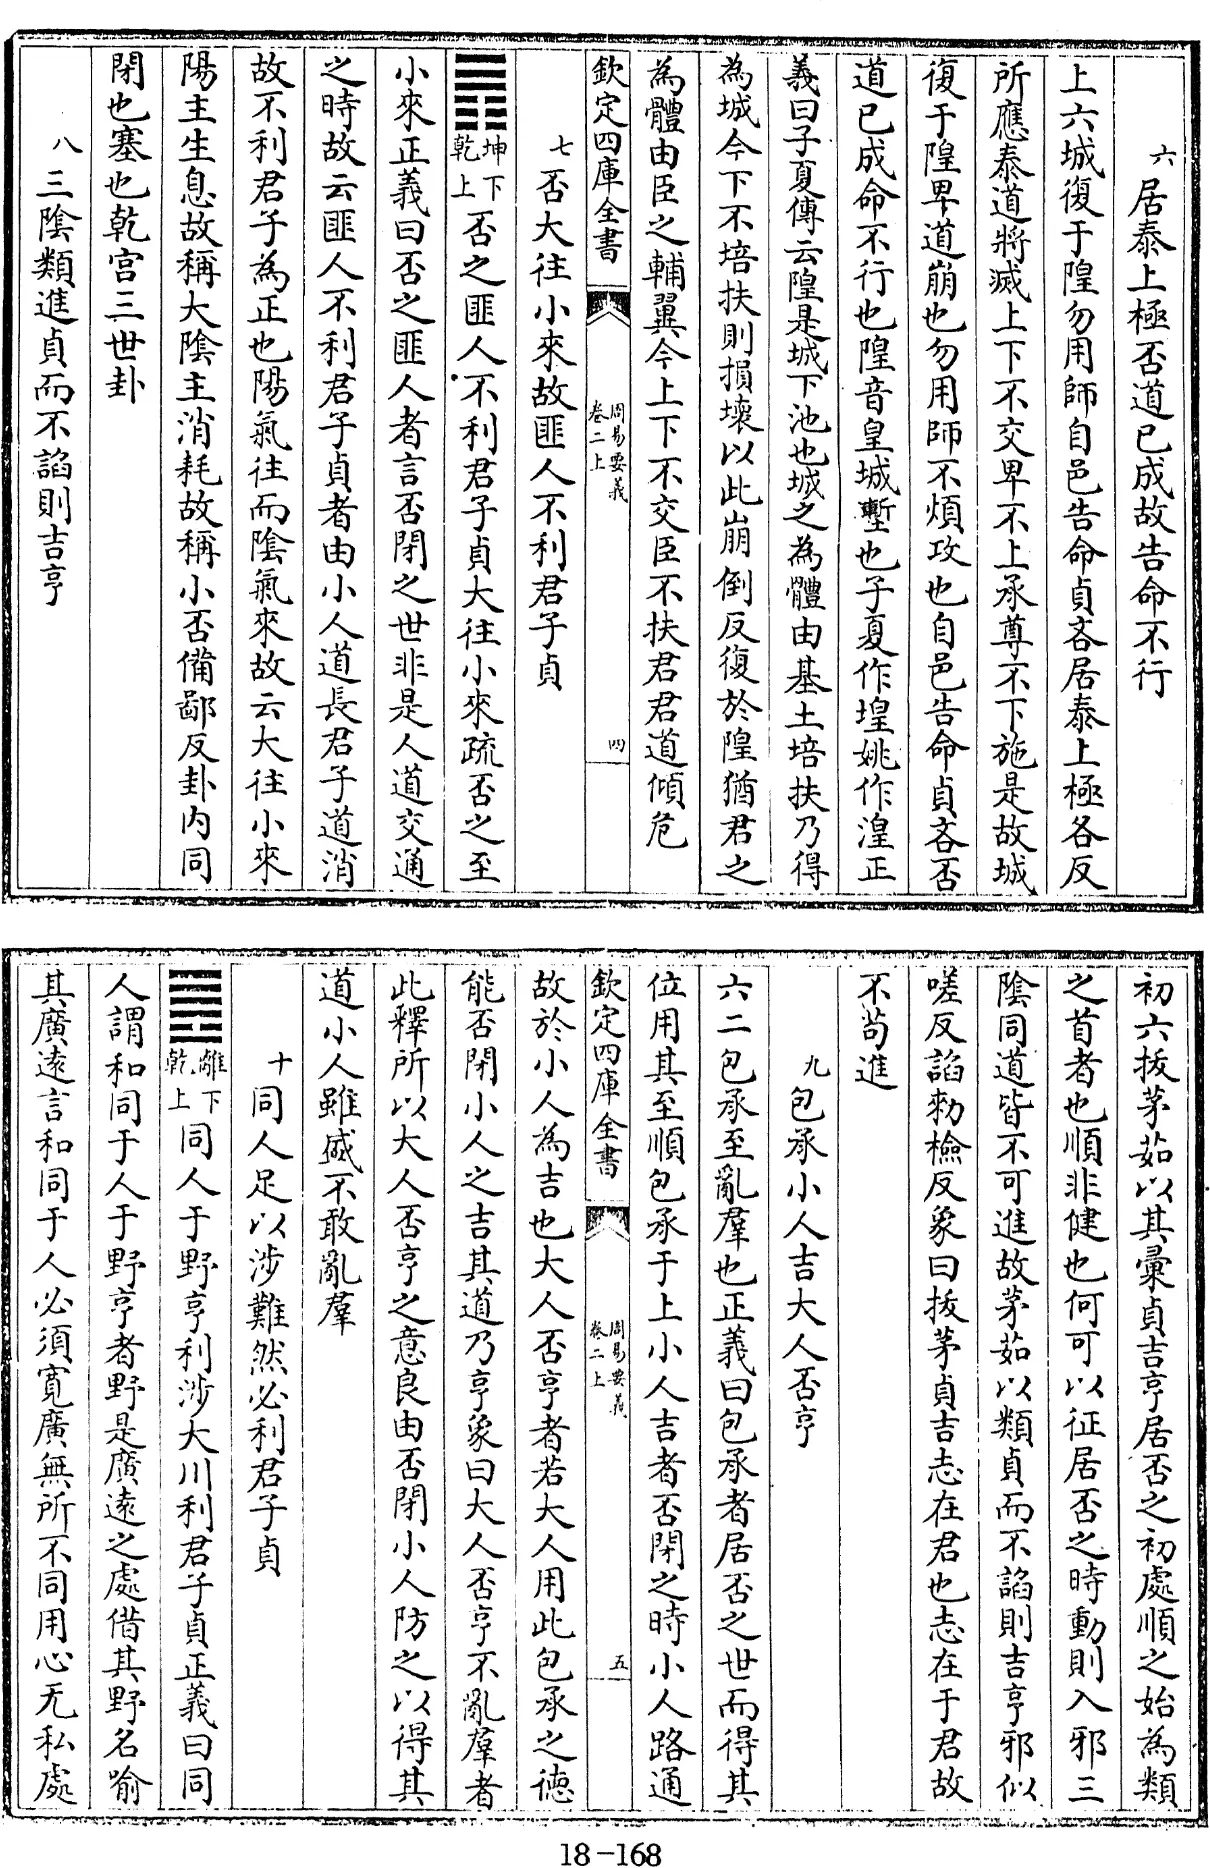 六居泰上極否道已成故告命不行
上六城復于隍勿用師自邑告命貞吝居泰上極各反
所應泰道將滅上下不交卑不上承尊不下施是故城
復于隍卑道崩也勿用師不煩攻也自邑告命貞吝否
道已成命不行也隍音皇城塹也子夏作堭姚作湟正
義曰子夏傳云隍是城下池也城之為體由基土培扶乃得
為城今下不培扶則損壞以此崩倒反復於隍猶君之
為體由臣之輔翼今上下不交臣不扶君君道傾危
欽定四庫全書
周易要義
卷二上
四
七否大往小來故匪人不利君子貞
坤下
乾上
否之匪人不利君子貞大往小來疏否之至
小來正義曰否之匪人者言否閉之世非是人道交通
之時故云匪人不利君子貞者由小人道長君子道消
故不利君子為正也陽氣往而陰氣來故云大往小來
陽主生息故稱大陰主消耗故稱小否備鄙反卦内同
閉也塞也乾宫三世卦
八三陰類進貞而不諂則吉亨
初六拔茅茹以其彙貞吉亨居否之初處順之始為類
之首者也順非健也何可以征居否之時動則入邪三
陰同道皆不可進故茅茹以類貞而不諂則吉亨邪似
嗟反諂勑檢反象曰拔茅貞吉志在君也志在于君故
不茍進
九包承小人吉大人否亨
六二包承至亂羣也正義曰包承者居否之世而得其
位用其至順包承于上小人吉者否閉之時小人路通
欽定四庫全書
周易要義
卷二上
五
故於小人為吉也大人否亨者若大人用此包承之德
能否閉小人之吉其道乃亨象曰大人否亨不亂羣者
此釋所以大人否亨之意良由否閉小人防之以得其
道小人雖盛不敢亂羣
十同人足以涉難然必利君子貞
離下
乾上
同人于野亨利涉大川利君子貞正義曰同
人謂和同于人于野亨者野是廣遠之處借其野名喻
其廣遠言和同于人必須寛廣無所不同用心无私處
18-168